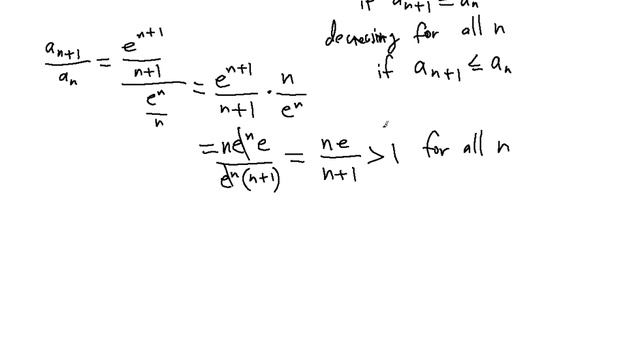 if a_{n+1} ≥ a_n
decreasing for all n
if a_{n+1} ≤ a_n
\frac{a_{n+1}}{a_n} = \frac{\frac{e^{n+1}}{n+1}}{\frac{e^n}{n}} = \frac{e^{n+1}}{n+1} · \frac{n}{e^n}
= \frac{n e^n e}{e^n (n+1)} = \frac{ne}{n+1} > 1 for all n